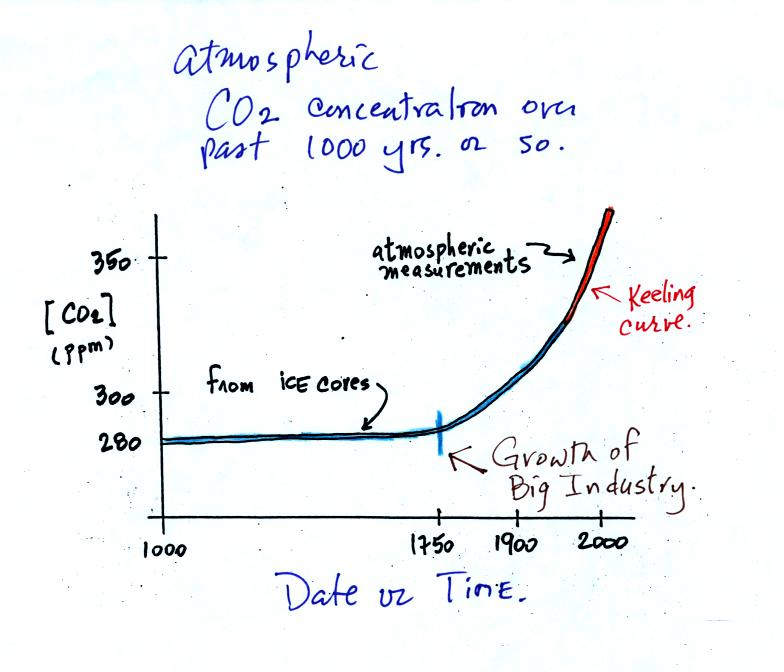 atmospheric
CO2 concentration over
past 1000 yrs. or so.
350
atmospheric
measurements
[CO2]
(ppm)
Keeling
curve.
300
from ICE cores
280
Growth of
Big Industry.
1000
1750
1900
2000
Date or Time.